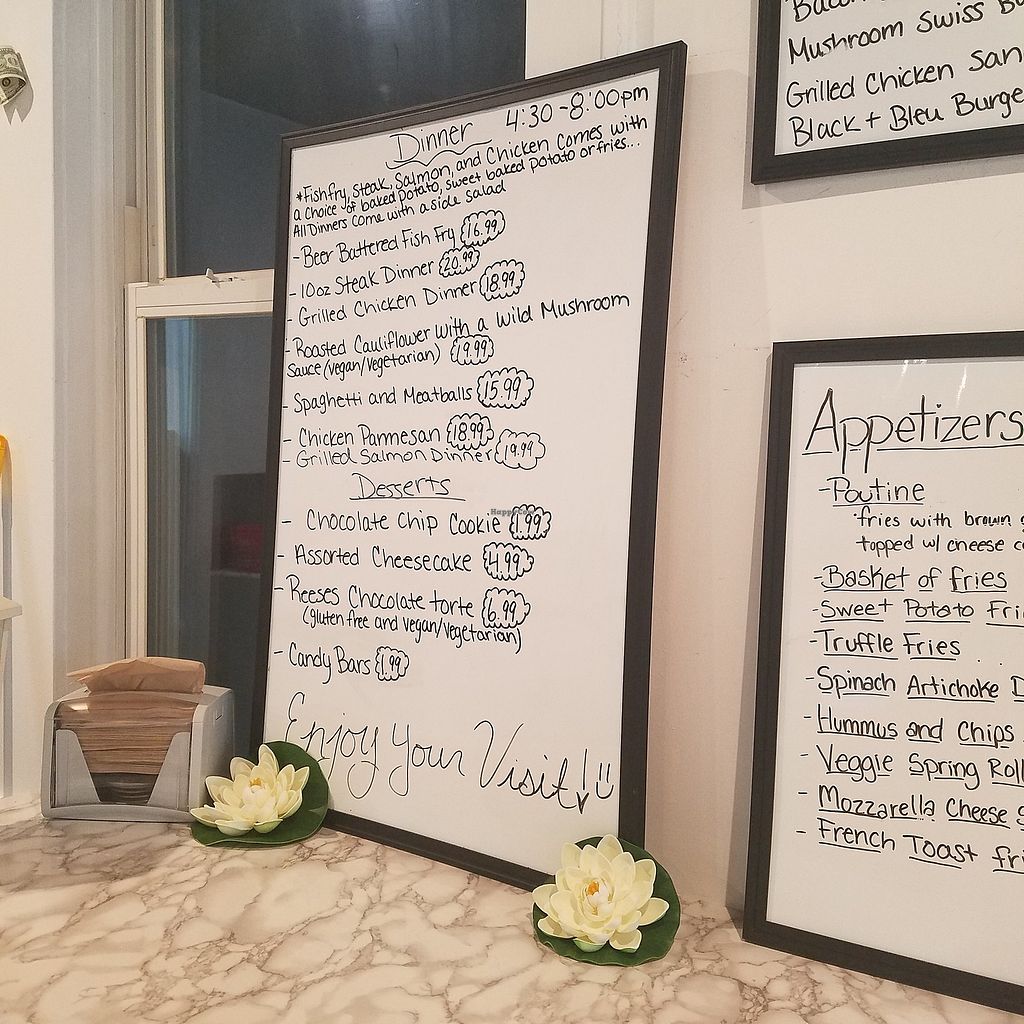 Dinner 4:30-8:00pm
*Fishfry, Steak, Salmon, and Chicken Comes with
a choice of baked potato, sweet baked potato or fries...
All Dinners Come with a side salad
- Beer Battered Fish Fry 16.99
- 10oz Steak Dinner 20.99
- Grilled Chicken Dinner 18.99
- Roasted Cauliflower with a Wild Mushroom
Sauce (vegan/vegetarian) 19.99
- Spaghetti and Meatballs 15.99
- Chicken Parmesan 18.99
- Grilled Salmon Dinner 19.99
Desserts
- Chocolate Chip Cookie 1.99
- Assorted Cheesecake 4.99
- Reeses Chocolate torte 6.99
(gluten free and vegan/vegetarian)
- Candy Bars 1.99
Enjoy Your Visit!
HappyCow
Mushroom Swiss
Grilled Chicken San
Black + Bleu Burge
Appetizers
- Poutine
fries with brown
topped w/ cheese
- Basket of fries
- Sweet Potato Fri
- Truffle Fries
- Spinach Artichoke D
- Hummus and Chips
- Veggie Spring Roll
- Mozzarella Cheese
- French Toast fri